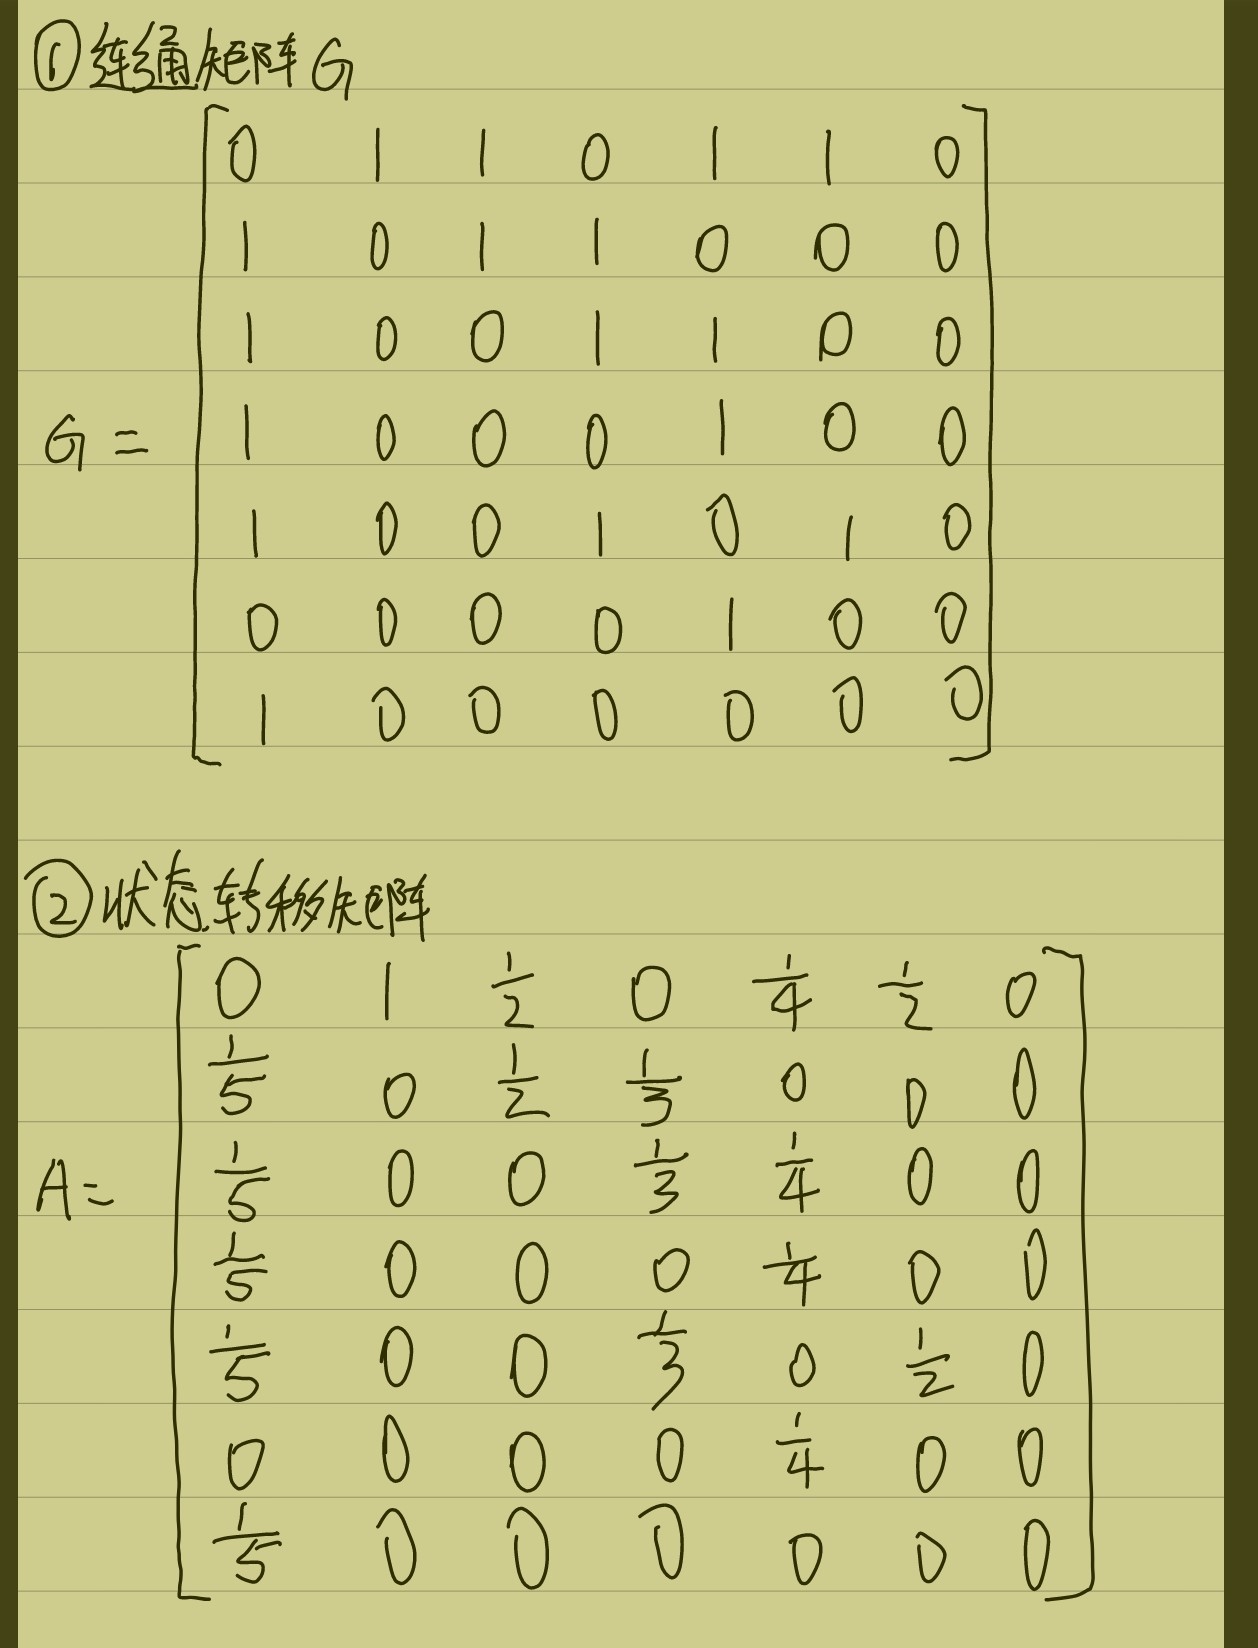 ①连通矩阵G
0 1 1 0 1 1 0
1 0 1 1 0 0 0
1 0 0 1 1 0 0
G= 1 0 0 0 1 0 0
1 0 0 1 0 1 0
0 0 0 0 1 0 0
1 0 0 0 0 0 0
②状态转移矩阵
0 1 1/2 0 1/4 1/2 0
1/5 0 1/2 1/3 0 0 0
A= 1/5 0 0 1/3 1/4 0 0
1/5 0 0 0 1/4 0 0
1/5 0 0 1/3 0 1/2 0
0 0 0 0 1/4 0 0
1/5 0 0 0 0 0 0